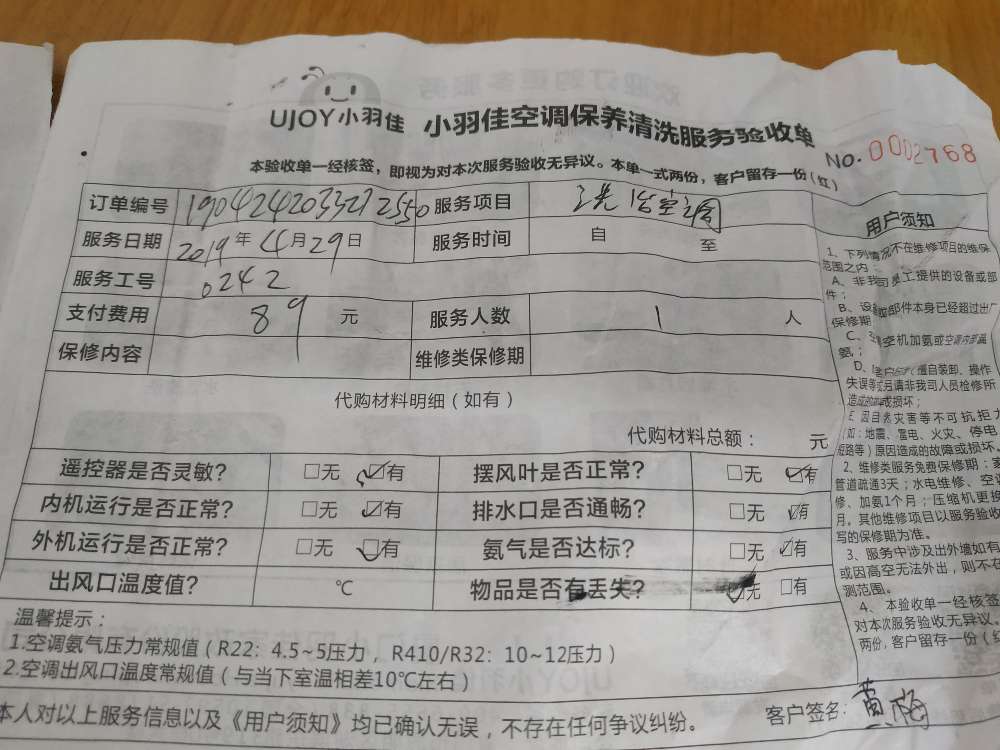 UJOY小羽佳 小羽佳空调保养清洗服务验收单
NO. 0002768
本验收单一经核签，即视为对本次服务验收无异议。本单一式两份，客户留存一份（红）
订单编号 1904242033212550 服务项目 洗 空调
服务日期 2019年4月29日 服务时间 自 至
服务工号 0242
支付费用 89 元 服务人数 1 人
保修内容 维修类保修期
代购材料明细（如有）
代购材料总额： 元
遥控器是否灵敏? ☐无 ☑有 摆风叶是否正常? ☐无 ☑有
内机运行是否正常? ☐无 ☑有 排水口是否通畅? ☐无 ☑有
外机运行是否正常? ☐无 ☑有 氨气是否达标? ☐无 ☑有
出风口温度值? ℃ 物品是否有丢失? ☑无 ☐有
温馨提示：
1.空调氨气压力常规值（R22：4.5~5压力，R410/R32：10~12压力）
2.空调出风口温度常规值（与当下室温相差10℃左右）
本人对以上服务信息以及《用户须知》均已确认无误，不存在任何争议纠纷。
客户签名：黄梅
用户须知
1、下列情况不在维修项目的维保
范围之内
A、非我司员工提供的设备或部
件；
B、设 部件本身已经超过出厂
保修期
C、 空机加氨或空调内部漏
氨；
D、 擅自装卸、操作
失误等 后请非我司人员检修所
造成的 或损坏；
E 因自然灾害等不可抗拒力
（如：地震、雷电、火灾、停电
短路等）原因造成的故障或损坏。
2、维修类服务免费保修期：家
管道疏通3天；水电维修、空调
修、加氨1个月；压缩机更换
月。其他维修项目以服务验收
写的保修期为准。
3、服务中涉及出外墙如有
或因高空无法外出，则不在
测范围。
4、本验收单一经核签
对本次服务验收无异议。
两份，客户留存一份（红